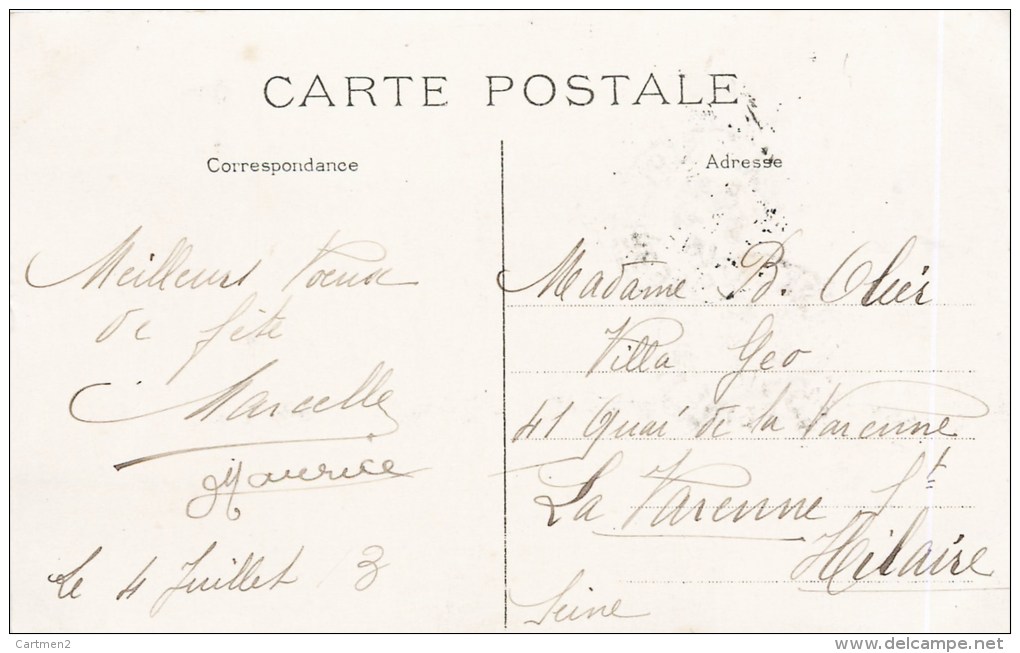 CARTE POSTALE
Correspondance
Meilleurs Voeux
de fête
Marcelle
Maurice
Le 4 Juillet 13
Adresse
Madame B. Oliés
Villa Geo
41 Quai de la Varenne
La Varenne St
Hilaire
Seine
Cartmen2
www.delcampe.net